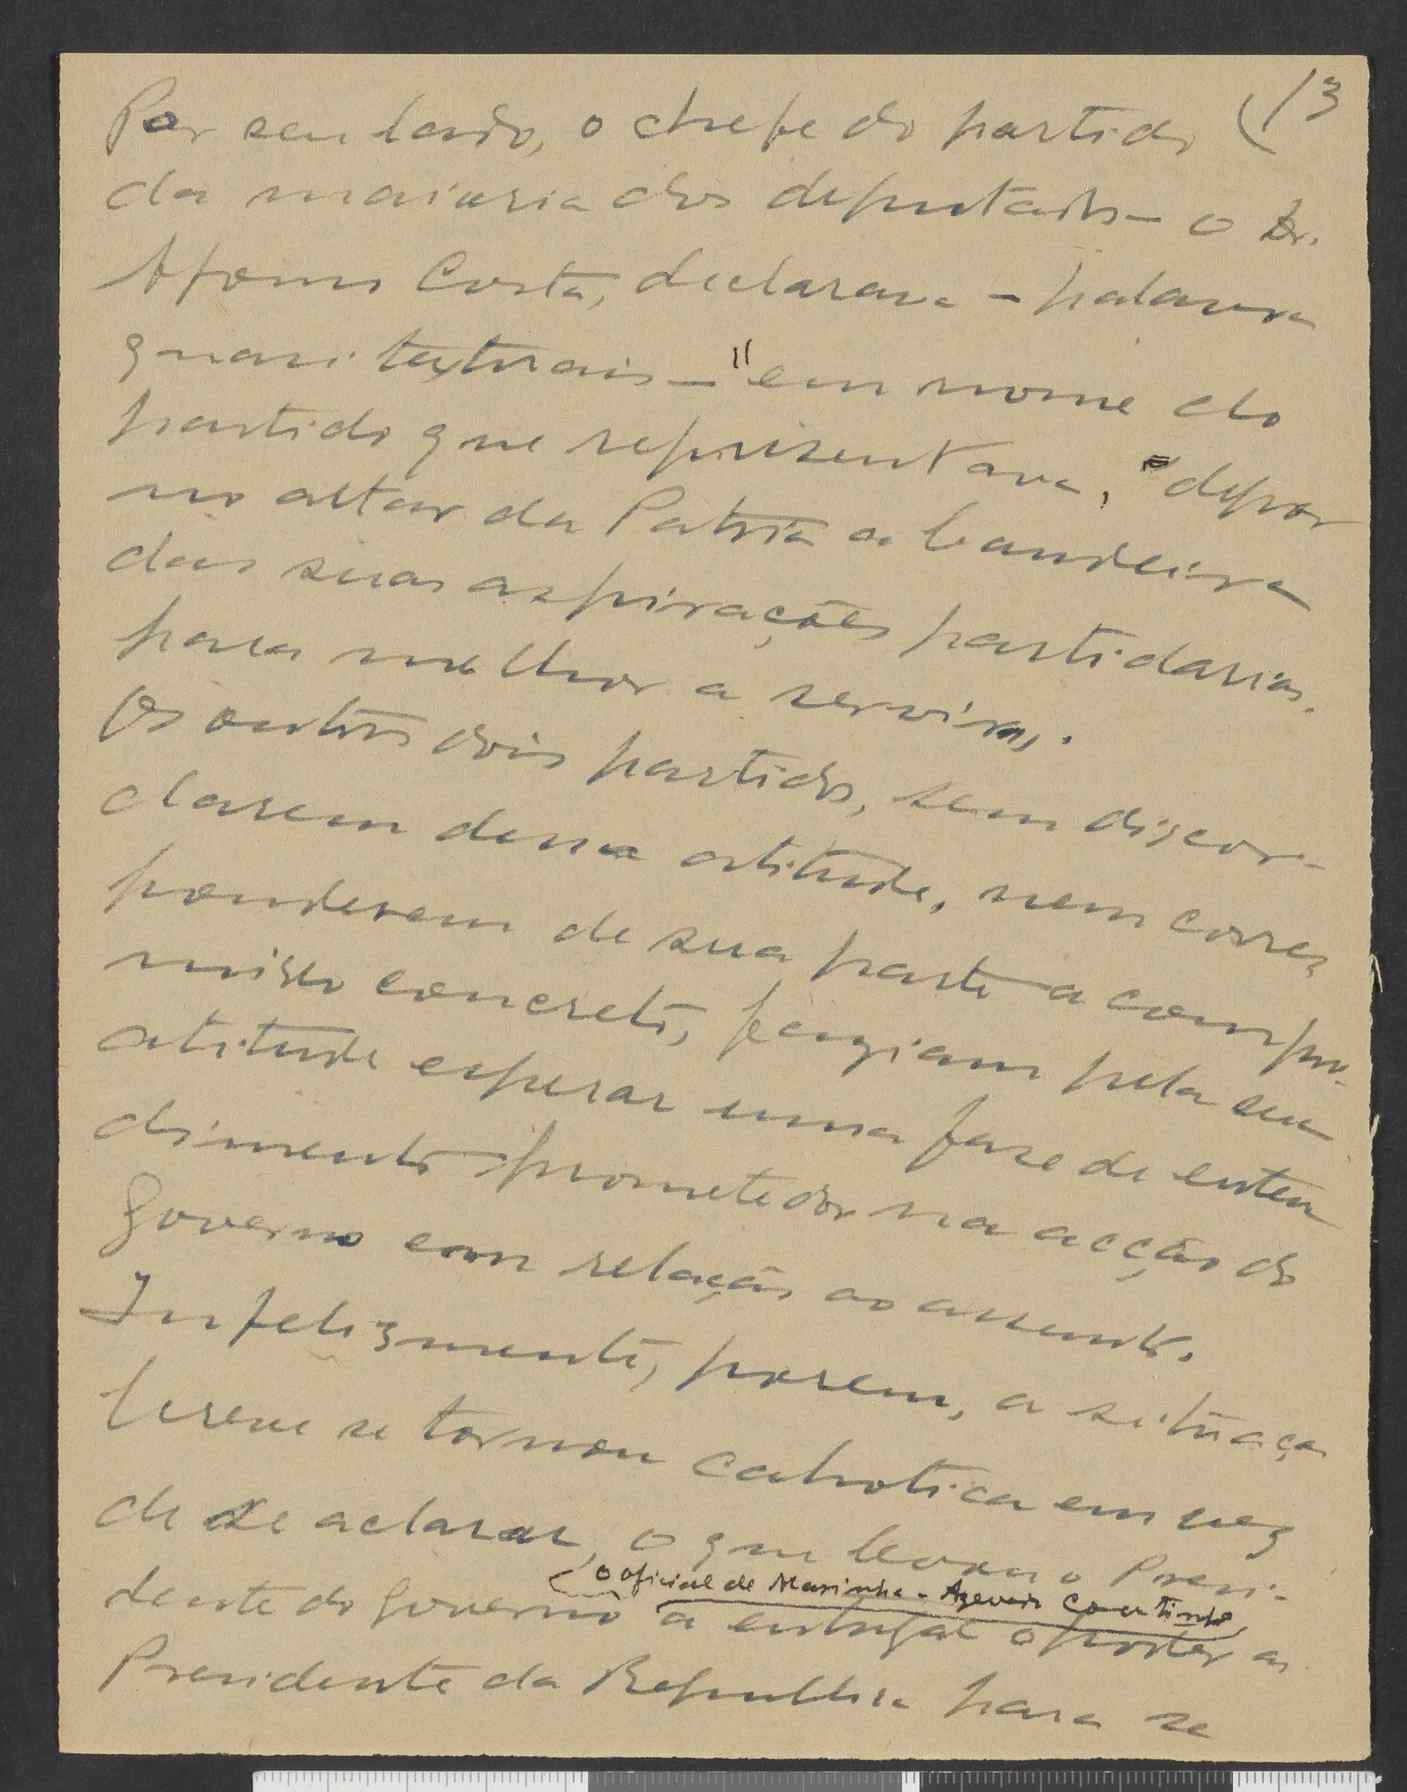 13
Por seu lado, o chefe do partido
da maioria dos deputados - o Dr.
Afonso Costa, declarava - palavra
quasi textuais - "em nome do
partido que representava, "depor
no altar da Patria a bandeira
das suas aspirações partidarias,
para melhor a servir".
Os outros dois partidos, sem discor-
darem dessa atitude, nem corres
ponderem de sua parte a compro-
misso concreto, faziam pela sua
atitude esperar uma fase de enten
dimento prometedor na acção do
Governo com relação ao assunto.
Infelizmente, porem, a situação
breve se tornou cahotica em vez
de se aclarar, o que levou o Presi-
(o oficial de Marinha - Azevedo Coutinho)
dente do Governo a entregar o poder ao
Presidente da Republica para se